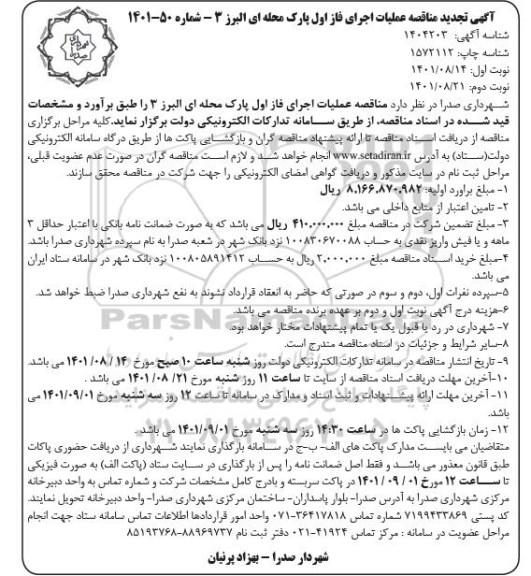 آگهی تجدید مناقصه عملیات اجرای فاز اول پارک محله ای البرز ۳ - شماره ۵۰-۱۴۰۱
شناسه آگهی: ۱۴۰۴۲۰۳
شناسه چاپ: ۱۵۷۲۱۱۲
نوبت اول: ۱۴۰۱/۰۸/۱۴
نوبت دوم: ۱۴۰۱/۰۸/۲۱
شهرداری صدرا در نظر دارد مناقصه عملیات اجرای فاز اول پارک محله ای البرز ۳ را طبق برآورد و مشخصات
قید شده در اسناد مناقصه، از طریق سامانه تدارکات الکترونیکی دولت برگزار نماید.کلیه مراحل برگزاری
مناقصه از دریافت اسناد مناقصه تا ارائه پیشنهاد مناقصه گران و بازگشایی پاکت ها از طریق درگاه سامانه الکترونیکی
دولت(ستاد) به آدرس www.setadiran.ir انجام خواهد شد و لازم است مناقصه گران در صورت عدم عضویت قبلی،
مراحل ثبت نام در سایت مذکور و دریافت گواهی امضای الکترونیکی را جهت شرکت در مناقصه محقق سازند.
۱- مبلغ برآورد اولیه: ۸.۱۶۶.۸۷۰.۹۸۲ ریال
۲- تامین اعتبار از منابع داخلی می باشد.
۳- مبلغ تضمین شرکت در مناقصه مبلغ ۴۱۰.۰۰۰.۰۰۰ ریال می باشد که به صورت ضمانت نامه بانکی با اعتبار حداقل ۳
ماهه و یا فیش واریز نقدی به حساب ۱۰۰۸۳۰۶۷۰۰۸۸ نزد بانک شهر در شعبه صدرا به نام سپرده شهرداری صدرا باشد.
۴-مبلغ خرید اسناد مناقصه مبلغ ۲.۰۰۰.۰۰۰ ریال به حساب ۱۰۰۸۰۵۸۹۱۴۱۲ نزد بانک شهر در سامانه ستاد ایران
می باشد.
۵-سپرده نفرات اول، دوم و سوم در صورتی که حاضر به انعقاد قرارداد نشوند به نفع شهرداری صدرا ضبط خواهد شد.
۶-هزینه درج آگهی نوبت اول و دوم بر عهده برنده مناقصه می باشد.
۷- شهرداری در رد یا قبول یک یا تمام پیشنهادات مختار خواهد بود.
۸-سایر شرایط و جزئیات در اسناد مناقصه مندرج است.
۹- تاریخ انتشار مناقصه در سامانه تدارکات الکترونیکی دولت روز شنبه ساعت ۱۰ صبح مورخ ۱۴ / ۰۸ / ۱۴۰۱ می باشد.
۱۰-آخرین مهلت دریافت اسناد مناقصه از سایت تا ساعت ۱۱ روز شنبه مورخ ۲۱ / ۰۸ / ۱۴۰۱ می باشد .
۱۱- آخرین مهلت ارائه پیشنهادات و ثبت اسناد و مدارک در سامانه تا ساعت ۱۲ روز سه شنبه مورخ ۱۴۰۱/۰۹/۰۱ می
باشد.
۱۲- زمان بازگشایی پاکت ها در ساعت ۱۴:۳۰ روز سه شنبه مورخ ۱۴۰۱/۰۹/۰۱ می باشد .
متقاضیان می بایست مدارک پاکت های الف- ب-ج در سامانه بارگذاری نمایند شهرداری از دریافت حضوری پاکات
طبق قانون معذور می باشد و فقط اصل ضمانت نامه را پس از بارگذاری در سایت ستاد (پاکت الف) به صورت فیزیکی
تا ساعت ۱۲ مورخ ۰۱ / ۰۹ / ۱۴۰۱ در پاکت سربسته و بادرج کامل مشخصات شرکت و شماره تماس به واحد دبیرخانه
مرکزی شهرداری صدرا به آدرس صدرا- بلوار پاسداران- ساختمان مرکزی شهرداری صدرا- واحد دبیرخانه تحویل نمایند.
کد پستی ۷۱۹۹۴۳۳۸۶۹ شماره تماس ۳۶۴۱۷۸۱۸-۰۷۱ واحد امور قراردادها اطلاعات تماس سامانه ستاد جهت انجام
مراحل عضویت در سامانه : مرکز تماس ۴۱۹۲۴-۰۲۱ دفتر ثبت نام ۸۸۹۶۹۷۳۷-۸۵۱۹۳۷۶۸
شهردار صدرا - بهزاد پرنیان